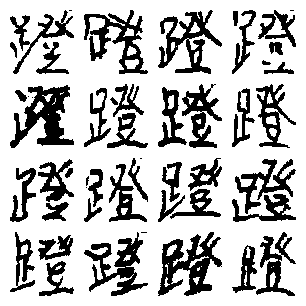 蹬蹬蹬蹬
蹬蹬蹬蹬
蹬蹬蹬蹬
蹬蹬蹬蹬